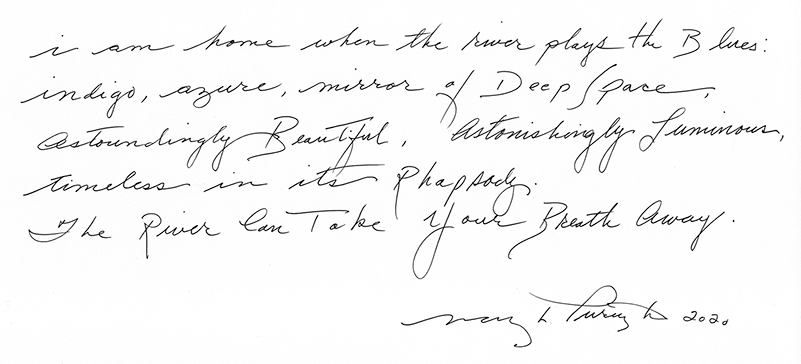 i am home when the river plays the Blues:
indigo, azure, mirror of Deep Space,
astoundingly Beautiful, astonishingly Luminous,
timeless in its Rhapsody.
The River Can Take Your Breath Away.
2020